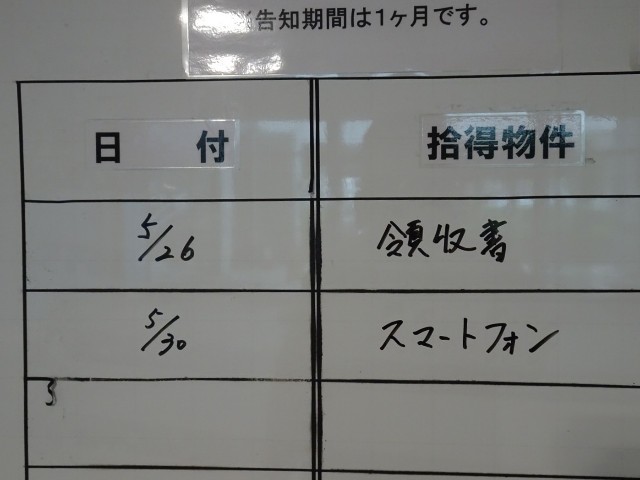 告知期間は1ヶ月です。
日 付 拾得物件
5/26 領収書
5/30 スマートフォン